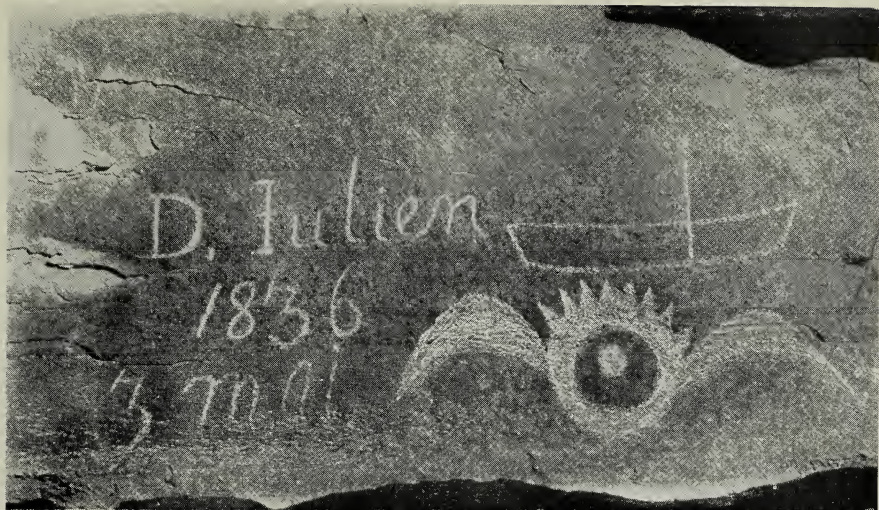 D. Julien
1836
3 mai